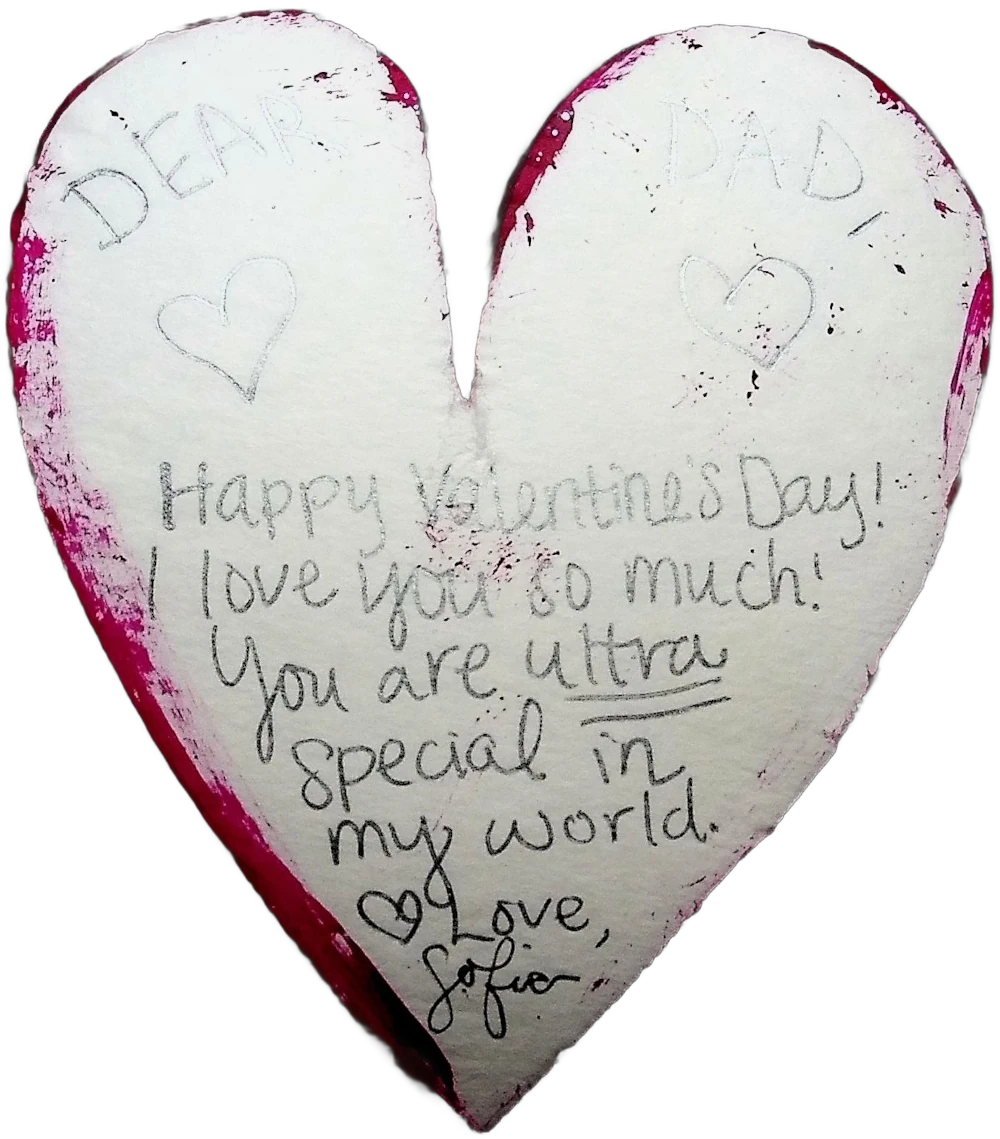 DEAR DAD,
Happy Valentine's Day!
I love you so much!
You are ultra
special in
my world.
Love,
Sofia